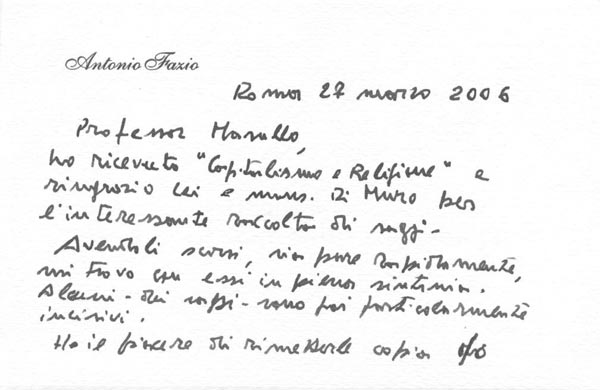 Antonio Fazio
Roma 27 marzo 2006
Professor Masullo,
ho ricevuto "Capitalismo e Religione" e
ringrazio Lei e mons. Di Muro per
l'interessante raccolta di saggi-
Avendoli scorsi, sia pure rapidamente,
mi trovo con essi in piena sintonia.
Alcuni - dei saggi - sono poi particolarmente
incisivi.
Ho il piacere di rimetterle copia